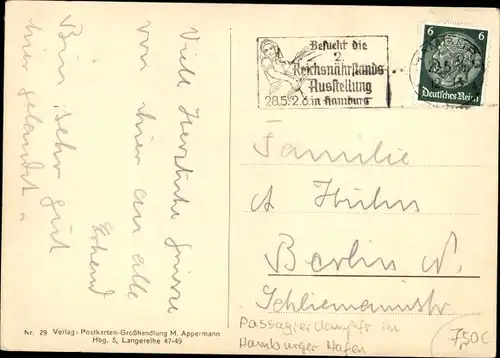 Viele Herzliche Grüsse
von hier an alle
Bin sehr gut
hier gelandet.
Besucht die
2.
Reichsnährstands
Ausstellung
28.5.-2.6. in Hamburg
6
Deutsches Reich
Familie
A Huhn
Berlin W.
Schliemannstr
Passagierdampfer im
Hamburger Hafen
7,50€
Nr. 29 Verlag: Postkarten-Großhandlung M. Appermann
Hbg. 5, Langereihe 47-49